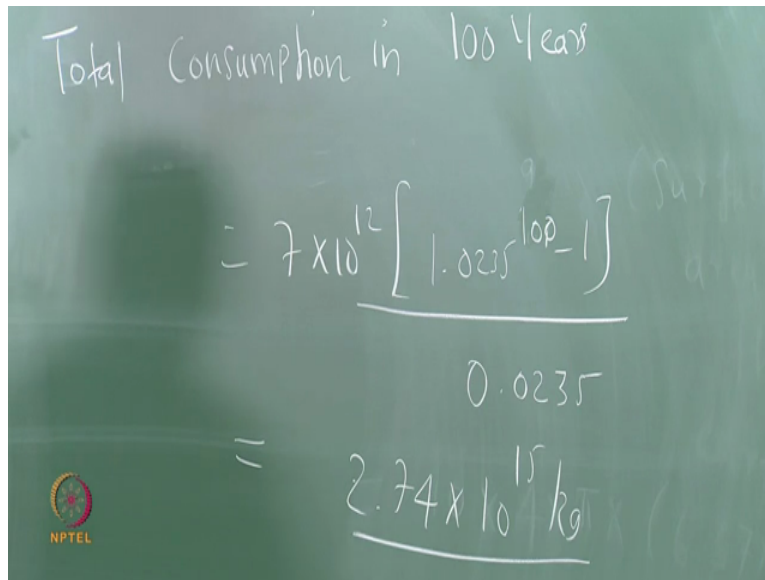 Total Consumption in 100 Years
= 7 × 10¹² [1.0235¹⁰⁰ - 1]
0.0235
= 2.74 × 10¹⁵ kg
NPTEL